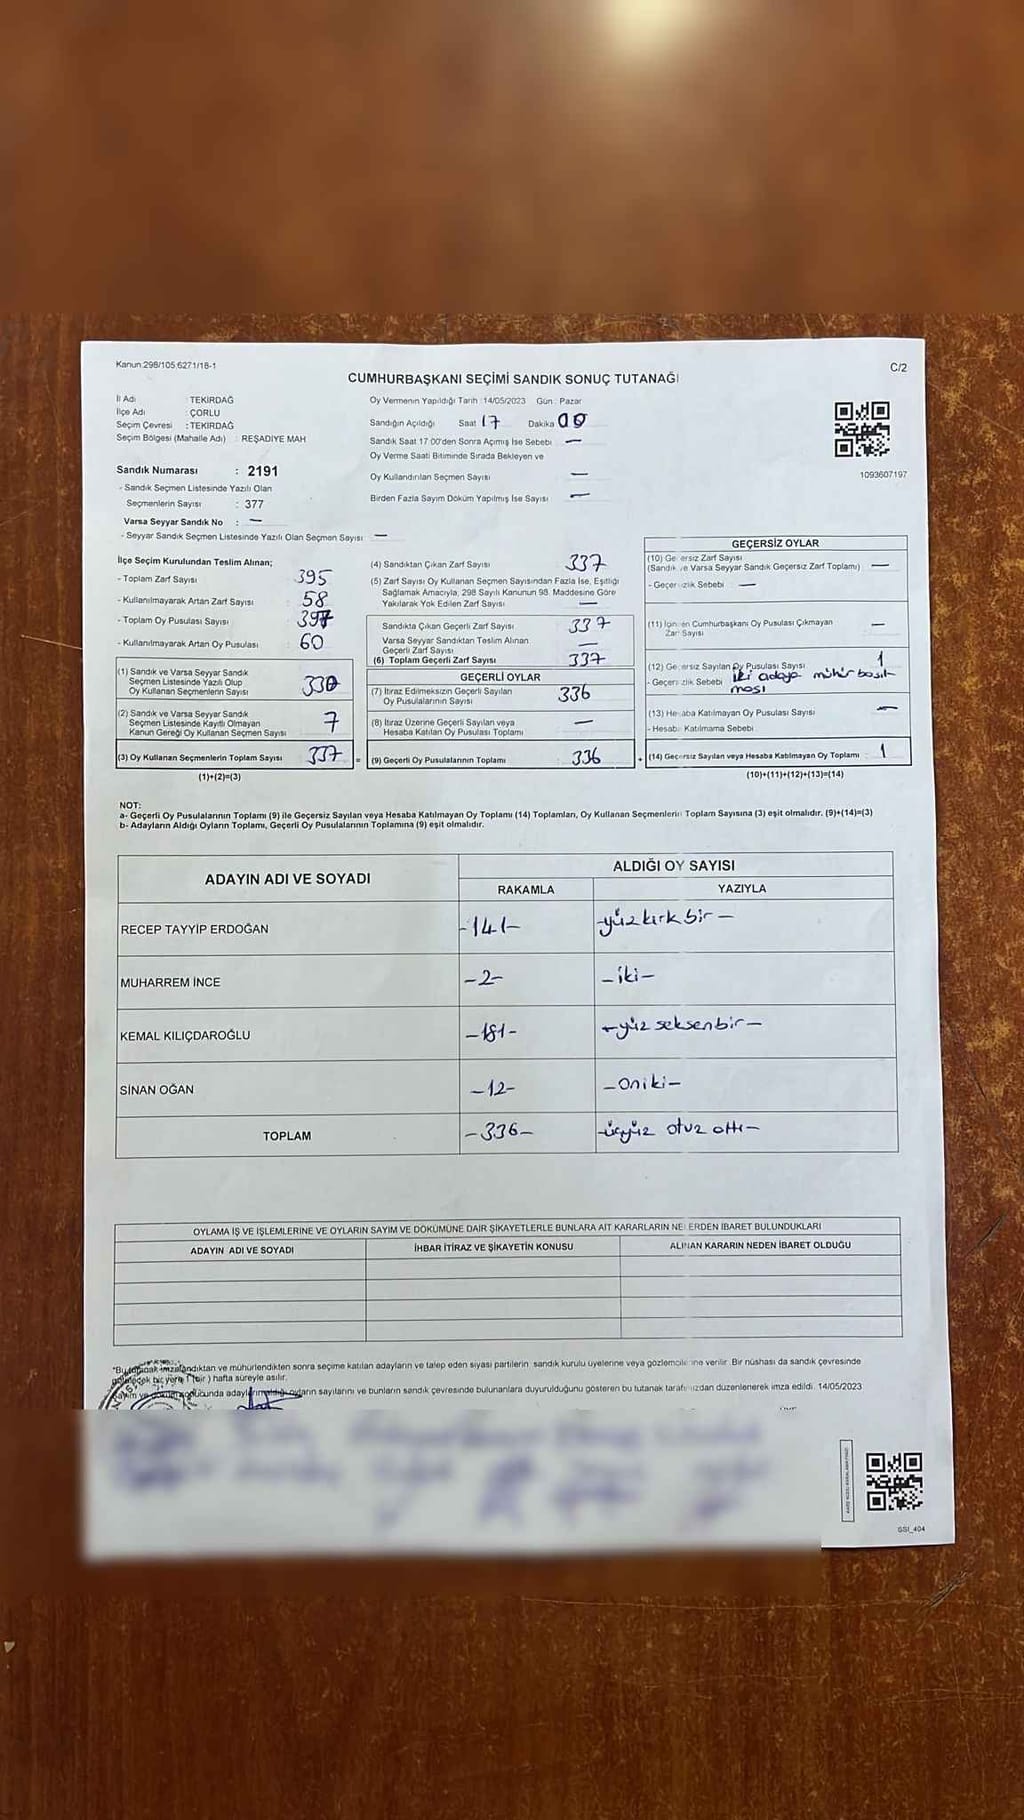 Kanun.298/105 6271/18-1
C/2
CUMHURBAŞKANI SEÇİMİ SANDIK SONUÇ TUTANAĞI
İl Adı : TEKİRDAĞ
İlçe Adı : ÇORLU
Seçim Çevresi : TEKİRDAĞ
Seçim Bölgesi (Mahalle Adı) : REŞADİYE MAH
Oy Vermenin Yapıldığı Tarih :14/05/2023 Gün : Pazar
Sandığın Açıldığı Saat 17 Dakika 00
Sandık Saat 17 00'den Sonra Açımış İse Sebebi —
Oy Verme Saati Bitiminde Sırada Bekleyen ve
Oy Kullandırılan Seçmen Sayısı —
Birden Fazla Sayım Döküm Yapılmış İse Sayısı —
1093607197
Sandık Numarası : 2191
- Sandık Seçmen Listesinde Yazılı Olan
Seçmenlerin Sayısı : 377
Varsa Seyyar Sandık No : —
- Seyyar Sandık Seçmen Listesinde Yazılı Olan Seçmen Sayısı —
İlçe Seçim Kurulundan Teslim Alınan;
- Toplam Zarf Sayısı 395
- Kullanılmayarak Artan Zarf Sayısı 58
- Toplam Oy Pusulası Sayısı 397
- Kullanılmayarak Artan Oy Pusulası 60
(1) Sandık ve Varsa Seyyar Sandık
Seçmen Listesinde Yazılı Olup
Oy Kullanan Seçmenlerin Sayısı 330
(2) Sandık ve Varsa Seyyar Sandık
Seçmen Listesinde Kayıtlı Olmayan
Kanun Gereği Oy Kullanan Seçmen Sayısı 7
(3) Oy Kullanan Seçmenlerin Toplam Sayısı 337
(1)+(2)=(3)
(4) Sandıktan Çıkan Zarf Sayısı 337
(5) Zarf Sayısı Oy Kullanan Seçmen Sayısından Fazla İse, Eşitliği
Sağlamak Amacıyla, 298 Sayılı Kanunun 98. Maddesine Göre
Yakılarak Yok Edilen Zarf Sayısı —
Sandıkta Çıkan Geçerli Zarf Sayısı 337
Varsa Seyyar Sandıktan Teslim Alınan
Geçerli Zarf Sayısı —
(6) Toplam Geçerli Zarf Sayısı 337
GEÇERLİ OYLAR
(7) İtiraz Edilmeksizin Geçerli Sayılan
Oy Pusulalarının Sayısı 336
(8) İtiraz Üzerine Geçerli Sayılan veya
Hesaba Katılan Oy Pusulası Toplamı —
= (9) Geçerli Oy Pusulalarının Toplamı 336
GEÇERSİZ OYLAR
(10) Geçersiz Zarf Sayısı
(Sandık ve Varsa Seyyar Sandık Geçersiz Zarf Toplamı) —
- Geçersizlik Sebebi —
(11) İçinden Cumhurbaşkanı Oy Pusulası Çıkmayan
Zarf Sayısı —
(12) Geçersiz Sayılan Oy Pusulası Sayısı 1
- Geçersizlik Sebebi iki adaya mühür basıl-
ması
(13) Hesaba Katılmayan Oy Pusulası Sayısı —
- Hesaba Katılmama Sebebi
+ (14) Geçersiz Sayılan veya Hesaba Katılmayan Oy Toplamı 1
(10)+(11)+(12)+(13)=(14)
NOT:
a- Geçerli Oy Pusulalarının Toplamı (9) ile Geçersiz Sayılan veya Hesaba Katılmayan Oy Toplamı (14) Toplamları, Oy Kullanan Seçmenlerin Toplam Sayısına (3) eşit olmalıdır. (9)+(14)=(3)
b- Adayların Aldığı Oyların Toplamı, Geçerli Oy Pusulalarının Toplamına (9) eşit olmalıdır.
ADAYIN ADI VE SOYADI
ALDIĞI OY SAYISI
RAKAMLA YAZIYLA
RECEP TAYYİP ERDOĞAN -141- -yüzkırkbir-
MUHARREM İNCE -2- -iki-
KEMAL KILIÇDAROĞLU -181- -yüzseksenbir-
SİNAN OĞAN -12- -Oniki-
TOPLAM -336- -üçyüz otuz altı-
OYLAMA İŞ VE İŞLEMLERİNE VE OYLARIN SAYIM VE DÖKÜMÜNE DAİR ŞİKAYETLERLE BUNLARA AİT KARARLARIN NELERDEN İBARET BULUNDUKLARI
ADAYIN ADI VE SOYADI İHBAR İTİRAZ VE ŞİKAYETİN KONUSU ALINAN KARARIN NEDEN İBARET OLDUĞU
*Bu tutanak imzalandıktan ve mühürlendikten sonra seçime katılan adayların ve talep eden siyasi partilerin sandık kurulu üyelerine veya gözlemcilerine verilir. Bir nüshası da sandık çevresinde
görülecek bir yere 1 (bir) hafta süreyle asılır.
Sayım ve döküm sonucunda adayların aldığı oyların sayılarını ve bunların sandık çevresinde bulunanlara duyurulduğunu gösteren bu tutanak tarafımızdan düzenlenerek imza edildi. 14/05/2023
SSİ_404